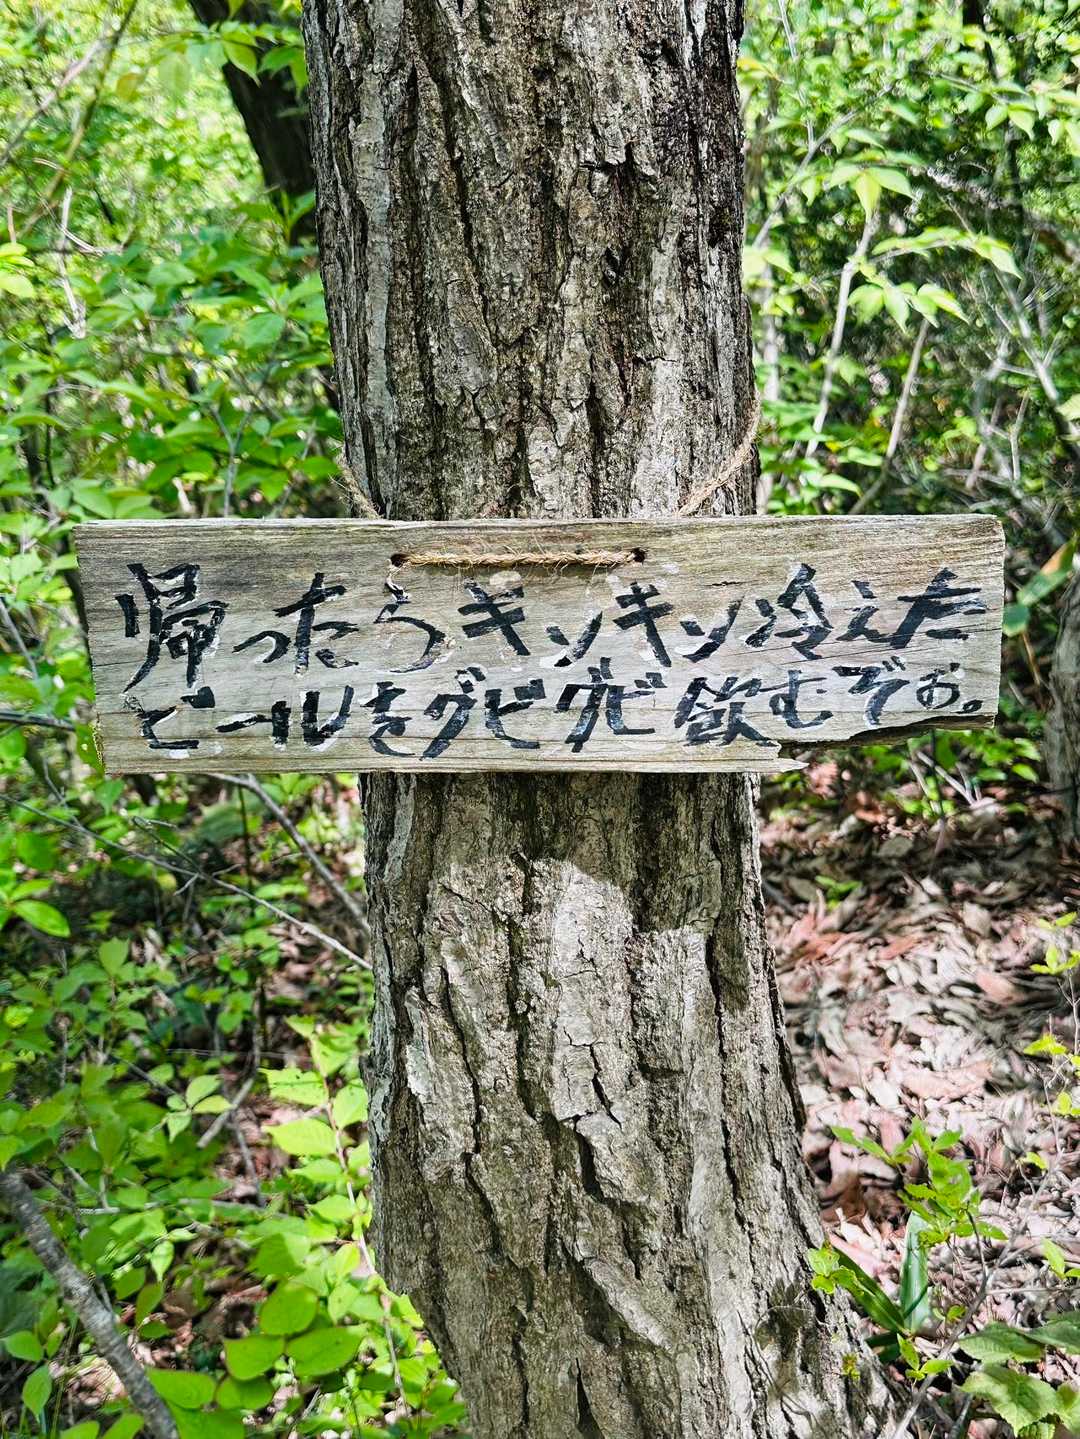 帰ったらキンキン冷えた
ビールをグビグビ飲むぞぉ。